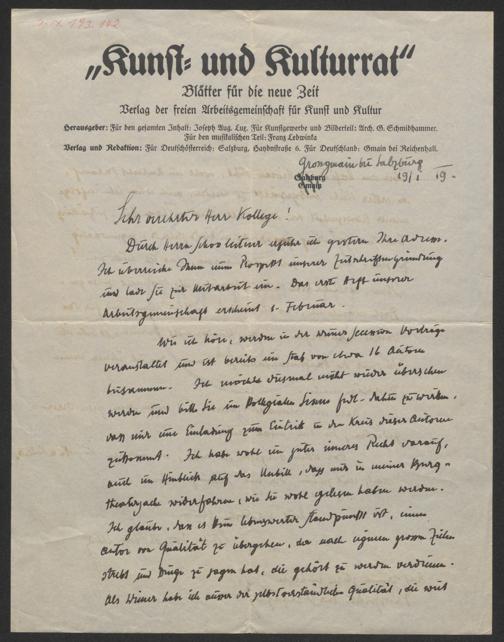 „Kunst= und Kulturrat“
Blätter für die neue Zeit
Verlag der freien Arbeitsgemeinschaft für Kunst und Kultur
Herausgeber: Für den gesamten Inhalt: Joseph Aug. Lux. Für Kunstgewerbe und Bilderteil: Arch. G. Schmidhammer.
Für den musikalischen Teil: Franz Ledwinka
Verlag und Redaktion: Für Deutschösterreich: Salzburg, Haydnstraße 6. Für Deutschland: Gmain bei Reichenhall.
Grossgmain bei Salzburg
Salzburg
Gmain
19/I 19.
Sehr verehrter Herr Kollege!
Durch Herrn erfuhr ich gestern Ihre Adresse.
Ich überreiche Ihnen einen Prospekt unserer Zeitschriftengründung
und lade Sie zur Mitarbeit ein. Das erste Heft unserer
Arbeitsgemeinschaft erscheint 1. Februar.
Wie ich höre, werden in der wiener Secession Vorträge
veranstaltet und ist bereits ein Stab von etwa 16 Autoren
beisammen. Ich möchte diesmal nicht wieder übersehen
werden und bitte Sie im kollegialen Sinne frdl. dahin zu wirken,
dass mir eine Einladung zum Eintritt in den Kreis dieser Autoren
zukommt. Ich habe wohl ein gutes inneres Recht darauf,
auch im Hinblick auf das Unbill, dass mir in meiner Burg-
theatersache widerfahren, wie Sie wohl gelesen haben werden.
Ich glaube, dass es kein lebenswerter Standpunkt ist, einen
Autor von Qualität zu übergehen, der nach eigenen grossen Zielen
strebt und Dinge zu sagen hat, die gehört zu werden verdienen.
Als Wiener habe ich ausser der selbstverständlichen Qualität, die weit